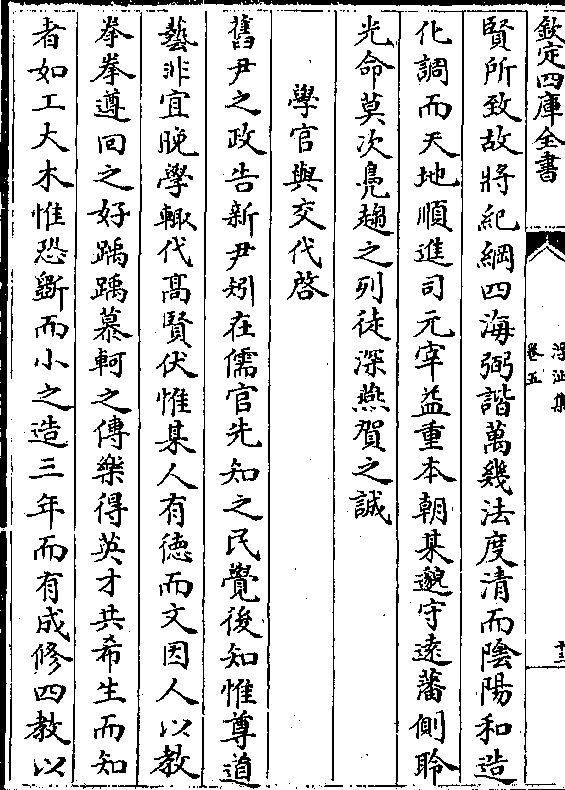 欽定四庫全書
浮沚集
卷五
十三
賢所致故將紀綱四海弼諧萬幾法度清而陰陽和造
化調而天地順進司元宰益重本朝某邈守遠藩側聆
光命莫次鳧趨之列徒深燕賀之誠
學官與交代啓
舊尹之政告新尹矧在儒官先知之民覺後知惟尊道
藝非宜晚學輙代髙賢伏惟某人有徳而文因人以教
拳拳遵回之好踽踽慕軻之傳樂得英才共希生而知
者如工大木惟恐斵而小之造三年而有成修四教以